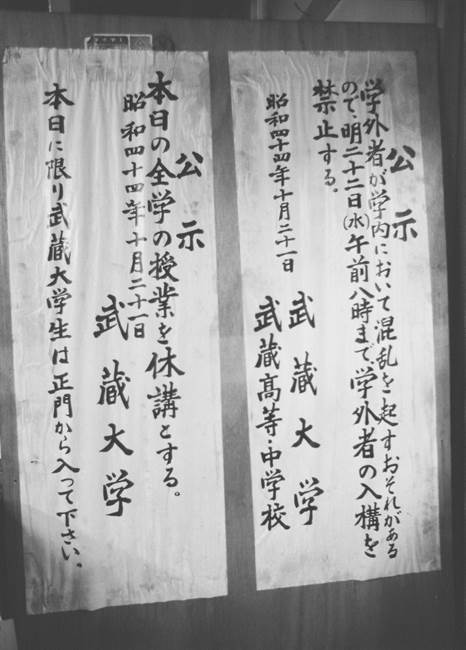 公示
学外者が学内において混乱を起すおそれがある
ので、明二十二日(水)午前八時まで、学外者の入構を
禁止する。
昭和四十四年十月二十一日
武蔵大学
武蔵高等・中学校
公示
本日の全学の授業を休講とする。
昭和四十四年十月二十一日
武蔵大学
本日に限り武蔵大学生は正門から入って下さい。